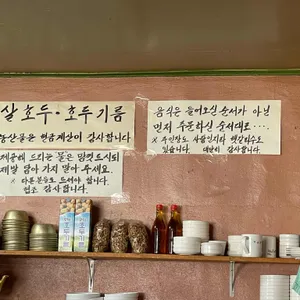 살호두·호두기름
농산물은 현금계산이 감사합니다
제공해 드리는 물은 맘껏드시되
제발 담아 가지 말아 주세요.
※ 다른분들도 드셔야 합니다.
협조 감사합니다.
음식은 들어오신 순서가 아닌
먼저 주문하신 순서대로‥‥.
※ 주인장도 사람인지라 헷갈릴수도
있습니다. 대단히 감사합니다.